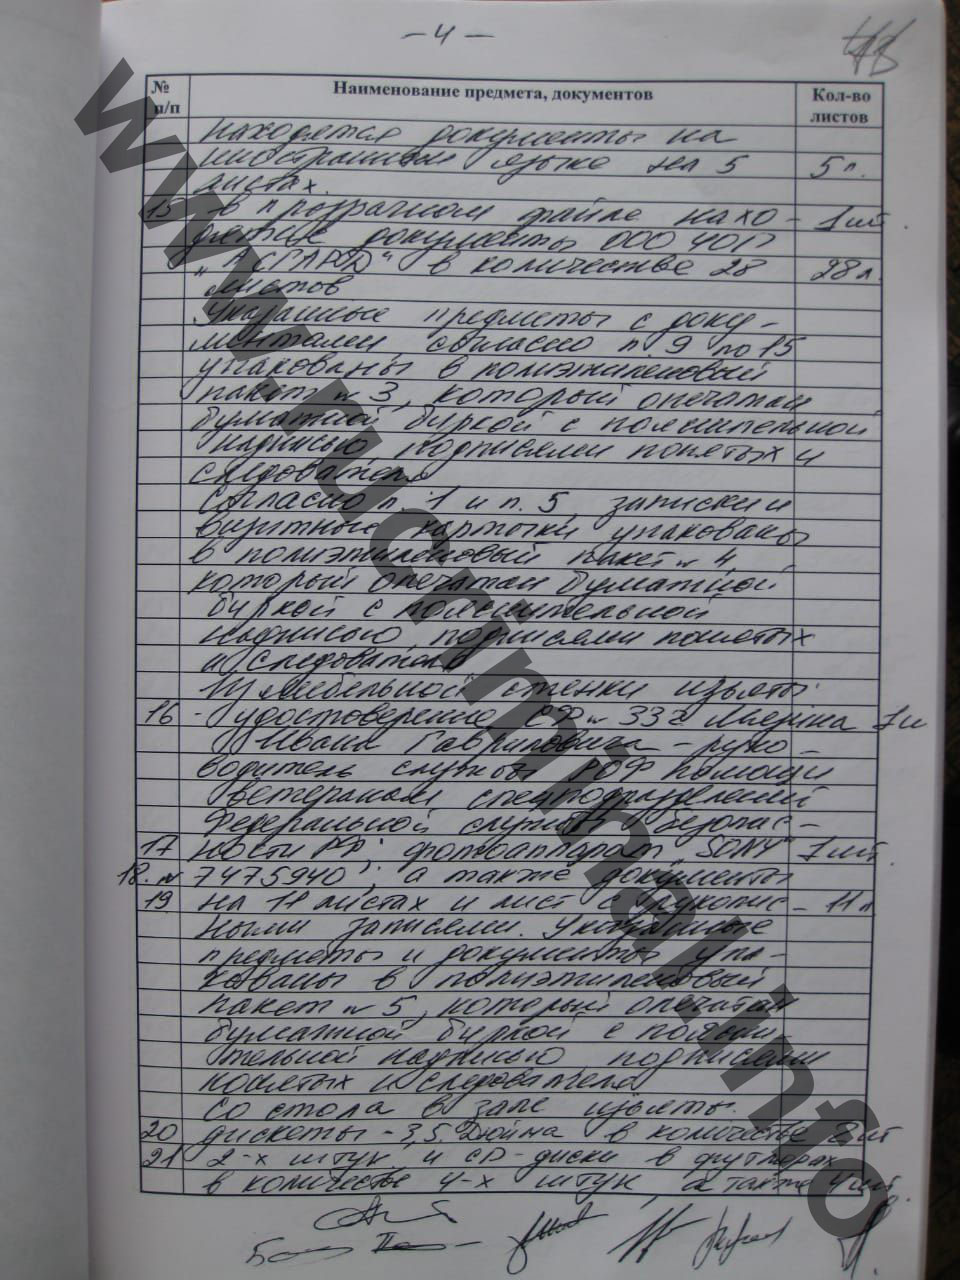 – 4 –
№ п/п Наименование предмета, документов Кол-во листов
находятся документы на
иностранном языке на 5 5 л.
листах.
15 в прозрачном файле нахо- 1 шт.
дятся документы ООО ЧОП
„АСГАРД" в количестве 28 28 л.
листов
Указанные предметы с доку-
ментами согласно п. 9 по 15
упакованы в полиэтиленовый
пакет № 3, который опечатан
бумажной биркой с пояснительной
надписью, подписями понятых и
следователя
Согласно п. 1 и п. 5, записки и
визитные карточки упакованы
в полиэтиленовый пакет № 4,
который опечатан бумажной
биркой с пояснительной
надписью, подписями понятых
и следователя
Из мебельной стенки изъяты:
16 - удостоверение РОФ № 332
Ивана Гавриловича – руко-
водитель службы РОФ помощи
ветеранам спецподразделений
Федеральной службы безопас-
17 ности РФ; фотоаппарат „SONY" 1 шт.
18. № 7475940; а также документы
19 на 11 листах и лист с рукопис- 11 л
ными записями. Указанные
предметы и документы упа-
кованы в полиэтиленовый
пакет № 5, который опечатан
бумажной биркой с поясни-
тельной надписью подписями
понятых и следователя
Со стола в зале изъяты:
20 дискеты - 3,5 дюйма в количестве 2 шт
21 2-х штук и CD-диски в футлярах
в количестве 4-х штук, а также 4 шт.
www.rucriminal.info